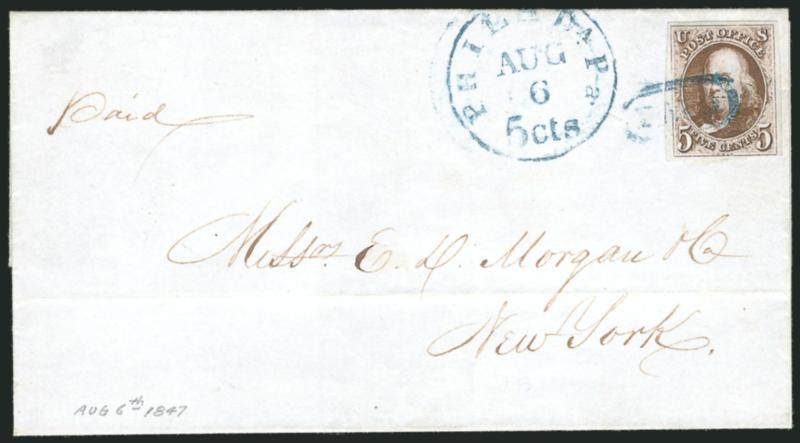 PHILADA Pa
AUG
6
5cts
U S
POST OFFICE
5 FIVE CENTS 5
Paid
Messrs E. D. Morgan & Co
New York.
AUG 6th 1847